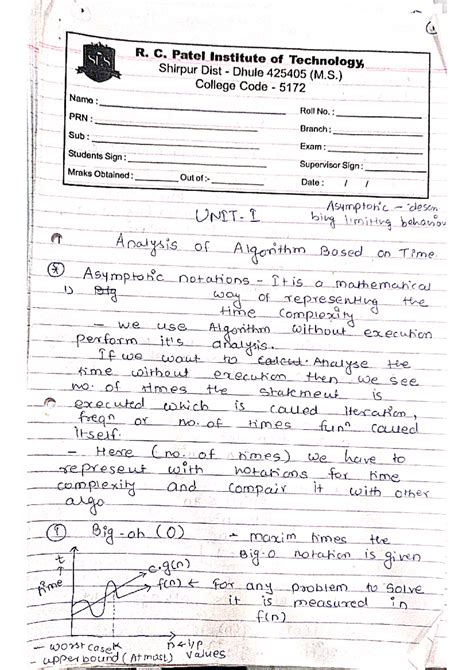 SES
R. C. Patel Institute of Technology,
Shirpur Dist - Dhule 425405 (M.S.)
College Code - 5172
Name :
Roll No. :
PRN :
Branch :
Sub :
Exam :
Students Sign :
Supervisor Sign :
Mraks Obtained : Out of :-
Date : / /
Asymptotic - descri
bing limiting behaviou
UNIT-I
Analysis of Algorithm Based on Time.
Asymptotic notations - It is a mathematical
1) way of representing the
time complexity
- we use Algorithm without execution
perform it's analysis.
If we want to Analyse the
time without execution then we see
no. of times the statment is
executed which is called Iteration,
freqn or no. of times funn called
itself.
- Here (no. of times) we have to
represent with notations for time
complexity and compair it with other
algo
① Big-oh (O) - maxim times the
Big-O notation is given
t
time
c.g(n)
f(n) ← for any problem to solve
it is measured in
f(n)
- worst case k n ← i/p
- upper bound (Atmost) values